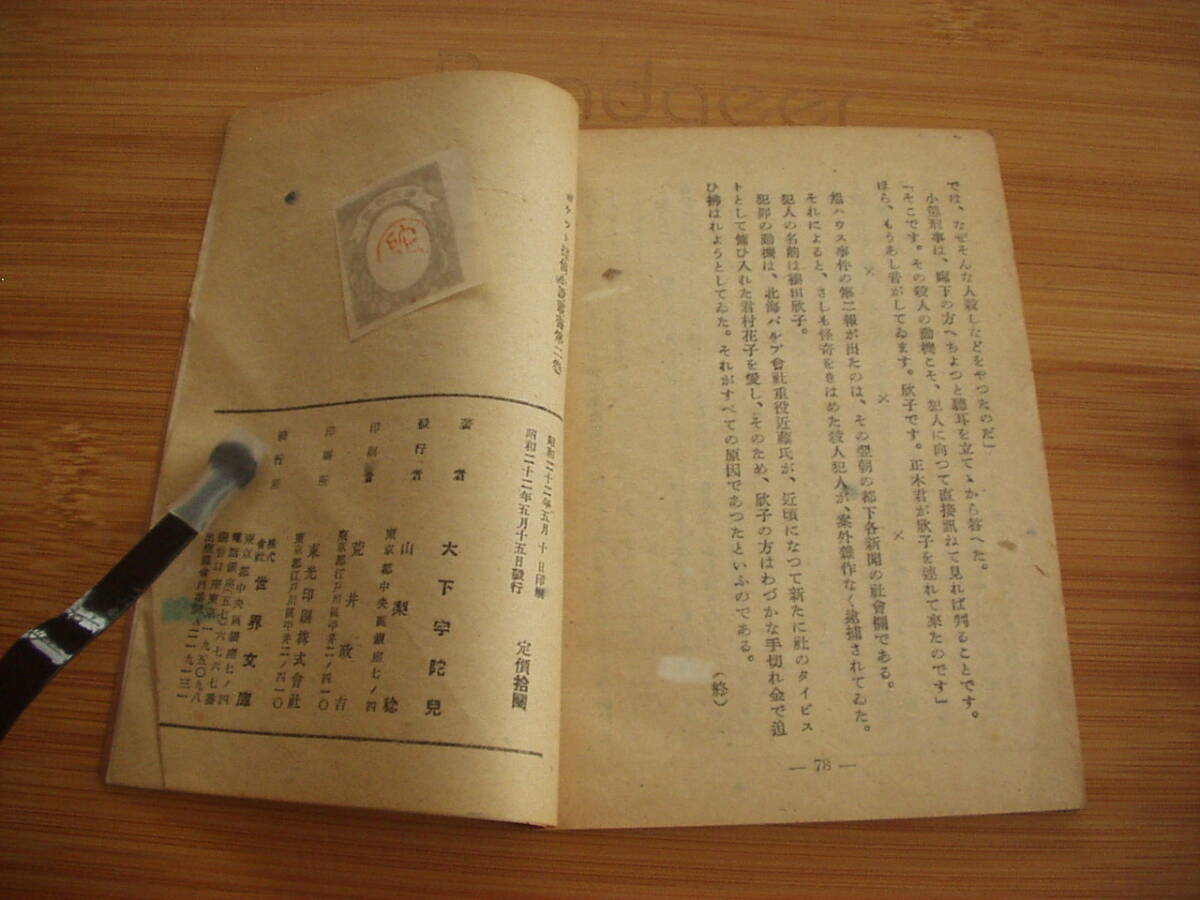 では、なぜそんな人殺しなどをやつたのだ」
小熊刑事は、廊下の方へちよつと聽耳を立てゝから答へた。
「そこです。その殺人の動機こそ、犯人に向つて直接訊ねて見れば判ることです。
ほら、もうあし音がしてゐます。欣子です。正木君が欣子を連れて來たのです」
× × ×
旭ハウス事件の第二報が出たのは、その翌朝の都下各新聞の社會欄である。
それによると、さしも怪奇をきはめた殺人犯人が、案外雜作なく逮捕されてゐた。
犯人の名前は 田欣子。
犯罪の動機は、北海パルプ會社重役近藤氏が、近頃になつて新たに社のタイピス
トとして傭ひ入れた君村花子を愛し、そのため、欣子の方はわづかな手切れ金で追
ひ拂はれようとしてゐた。それがすべての原因であつたといふのである。
(終)
— 78 —
昭和二十二年五月十日印刷
昭和二十二年五月十五日發行
定價拾圓
著者 大下宇陀兒
發行者 山梨稔
東京都中央區銀座七ノ四
印刷者 荒井政吉
東京都江戸川區中央二ノ四一〇
印刷所 東光印刷株式會社
東京都江戸川區中央二ノ四一〇
發行所 株式會社 世界文庫
東京都中央區銀座七ノ四
電話銀座(57)六七六七番
振替口座東京一九五〇九八
出版協會員番號A二一九一三一
Bondgeer